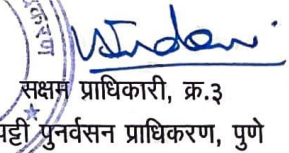 करण
सक्षम प्राधिकारी, क्र.३
पट्टी पुनर्वसन प्राधिकरण, पुणे